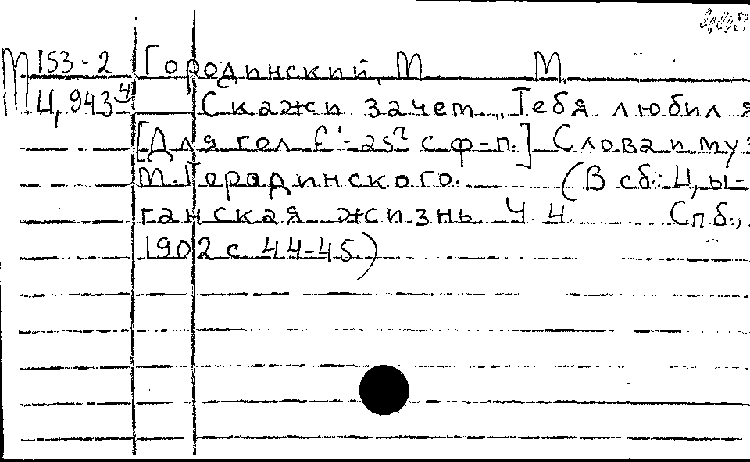 М 153-2 Городинский, М. М.
Ц,943 4 Скажи зачем „Тебя любил я
[Для гол. f'-as² с ф-п.] Слова и муз
М. Городинского. (В сб.: Цы-
ганская жизнь Ч 4 Спб.,
1902 с. 44-45.)